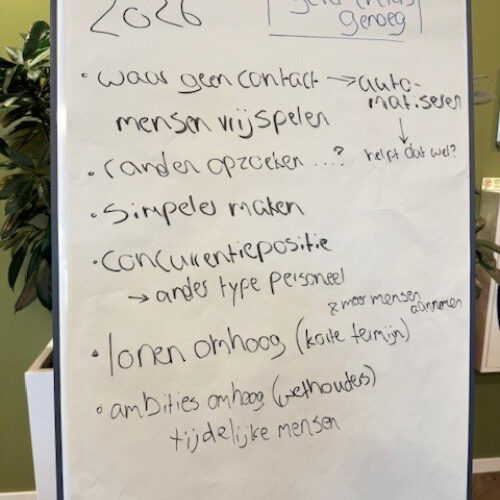 2026
genoeg
• waar geen contact → auto-
matiseren
mensen vrijspelen
↓
helpt dat wel?
• randen opzoeken ....?
• simpeler maken
• concurrentiepositie
→ ander type personeel
& meer mensen
aannemen
• lonen omhoog (korte termijn)
• ambities omhoog (wethouders)
tijdelijke mensen